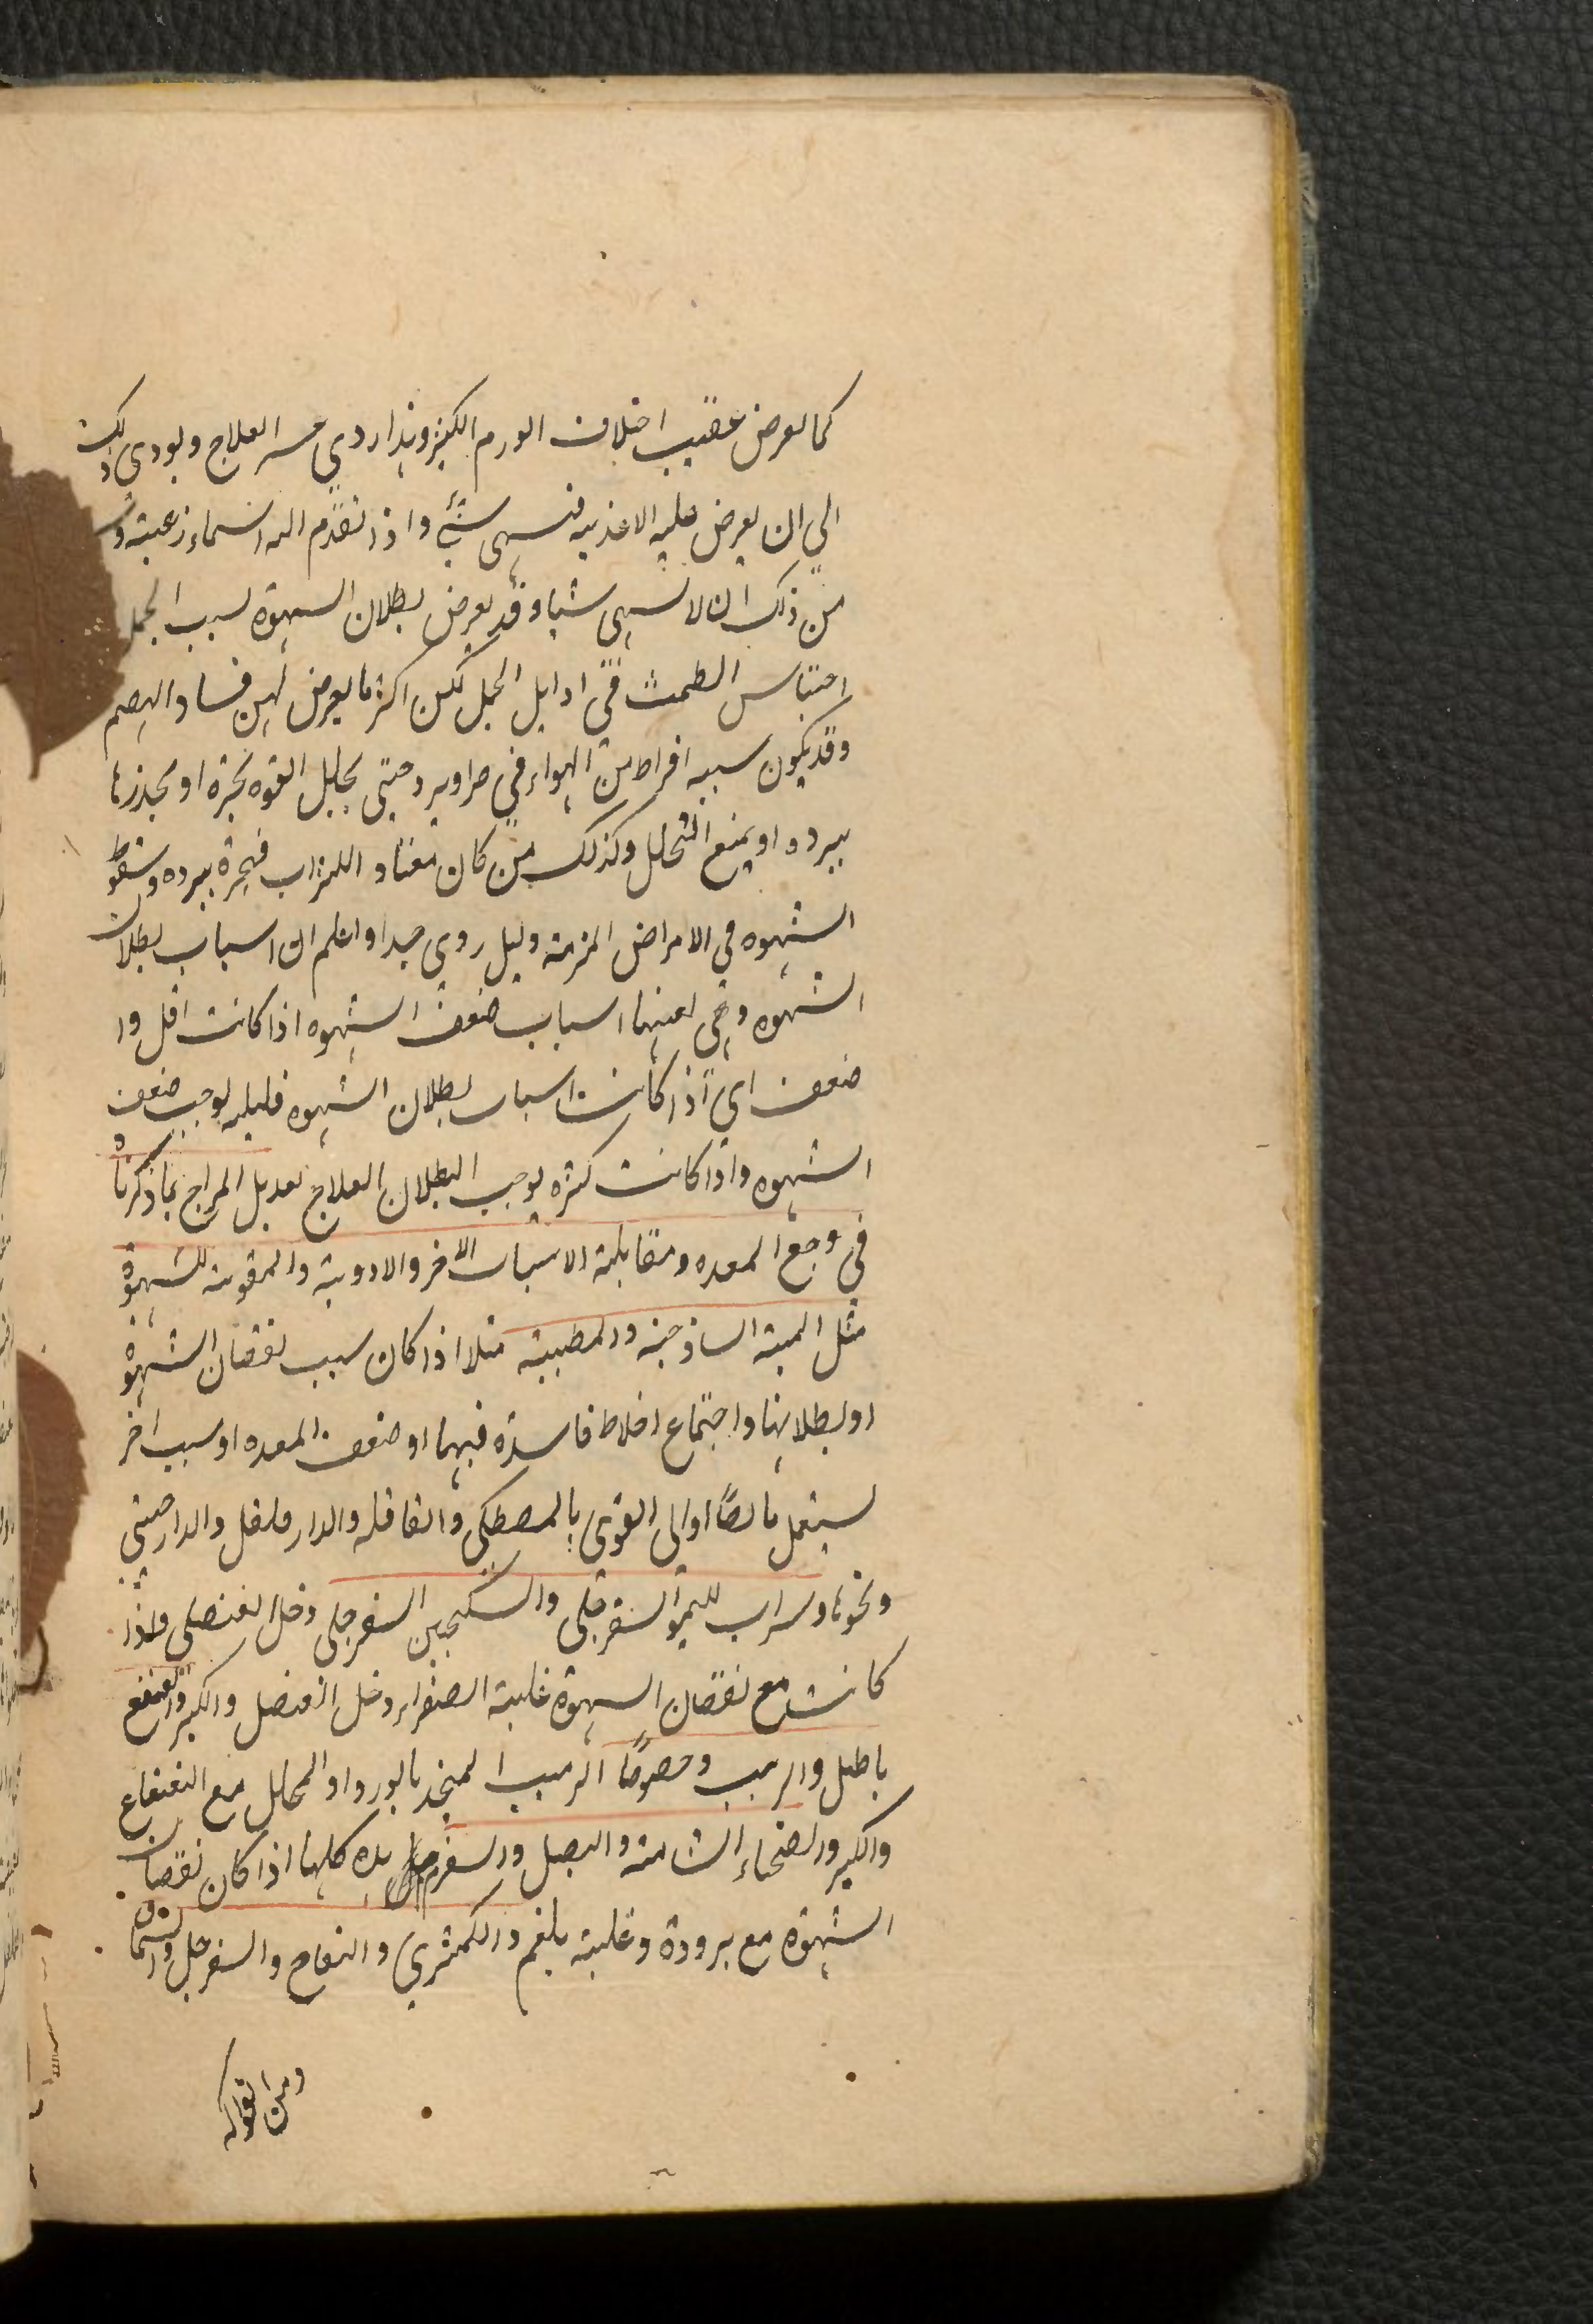 كما يعرض عقيب اختلاف الورم الكثير وهذا ردي عسر العلاج ويودى ذلك
الي ان يعرض عليه الاغذيه فيشتهي شئ واذا تقدم اليه اشماز عنه و
من ذلك ان لا يشتهي شيا وقد يعرض بطلان الشهوة بسبب الحمل
احتباس الطمث في اوايل الحمل لكن اكثر ما يعرض لهن فساد الهضم
وقد يكون سببه افراط من الهواء في حر او برد حتى يحلل القوه بحره او يخدرها
ببرده او يمنع التحلل وكذلك من كان معتاد الشراب فهجره ببرده وسقوط
الشهوه في الامراض المزمنه دليل ردي جدا واعلم ان اسباب بطلان
الشهوه وهي بعينها اسباب ضعف الشهوه اذا كانت اقل وا
ضعف اي اذا كانت اسباب بطلان الشهوه قليله يوجب ضعف
الشهوه واذا كانت كثره يوجب البطلان العلاج تعديل المزاج بما ذكرناه
في وجع المعده ومقابلة الاسباب الاخر والادوية والمقويه للشهوة
مثل الميبه الساذجيه والمطيبه مثلا اذا كان سبب نقصان الشهوة
او بطلانها واجتماع اخلاط فاسدة فيها او ضعف المعده او سبب اخر
يستعمل القوى بالمصطكي والقاقله والدارفلفل والدارصيني
ونحوها وشراب الليمو السفرجلى والسكنجبين السفرجلى وخل العنصلى واذا
كانت مع نقصان الشهوة غلبة الصفراء وخل العنصل والكبر والنعنع
باطل والزبيب وخصوصًا الزبيب المتخذ بالورد او المخلل مع النعناع
والكبر والصحناء الشاميه والبصل والسفرجل هذه كلها اذا كان نقصان
الشهوة مع برودة وغلبة بلغم والكمثري والتفاح والسفرجل
ومن الفواكه